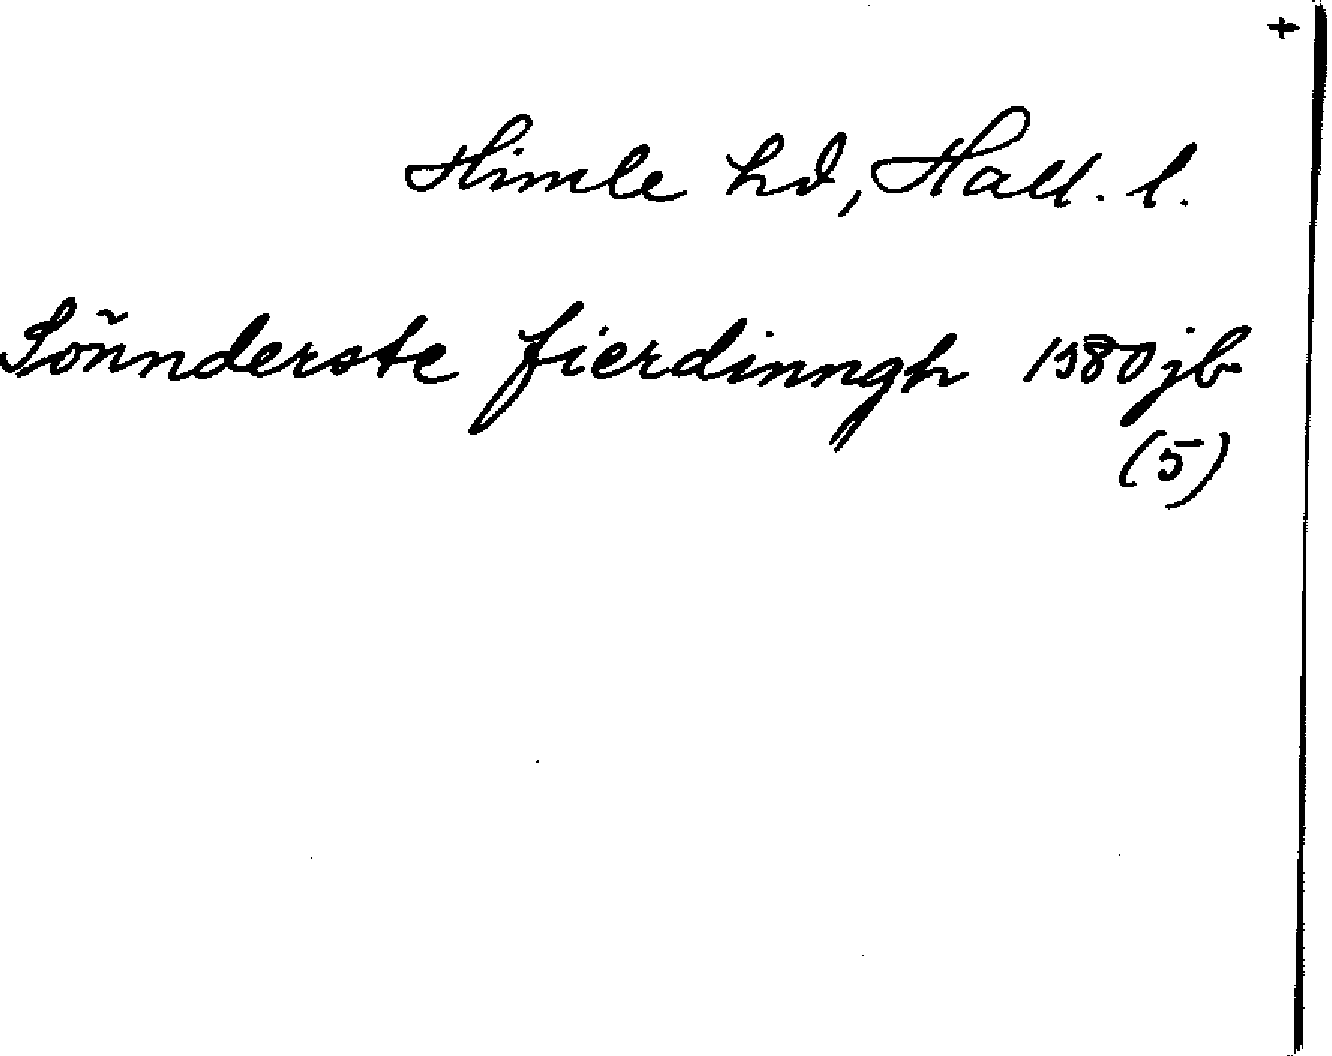 +
Himle hd, Hall. l.
Sönnderste fierdinngh 1580 jb
(5)